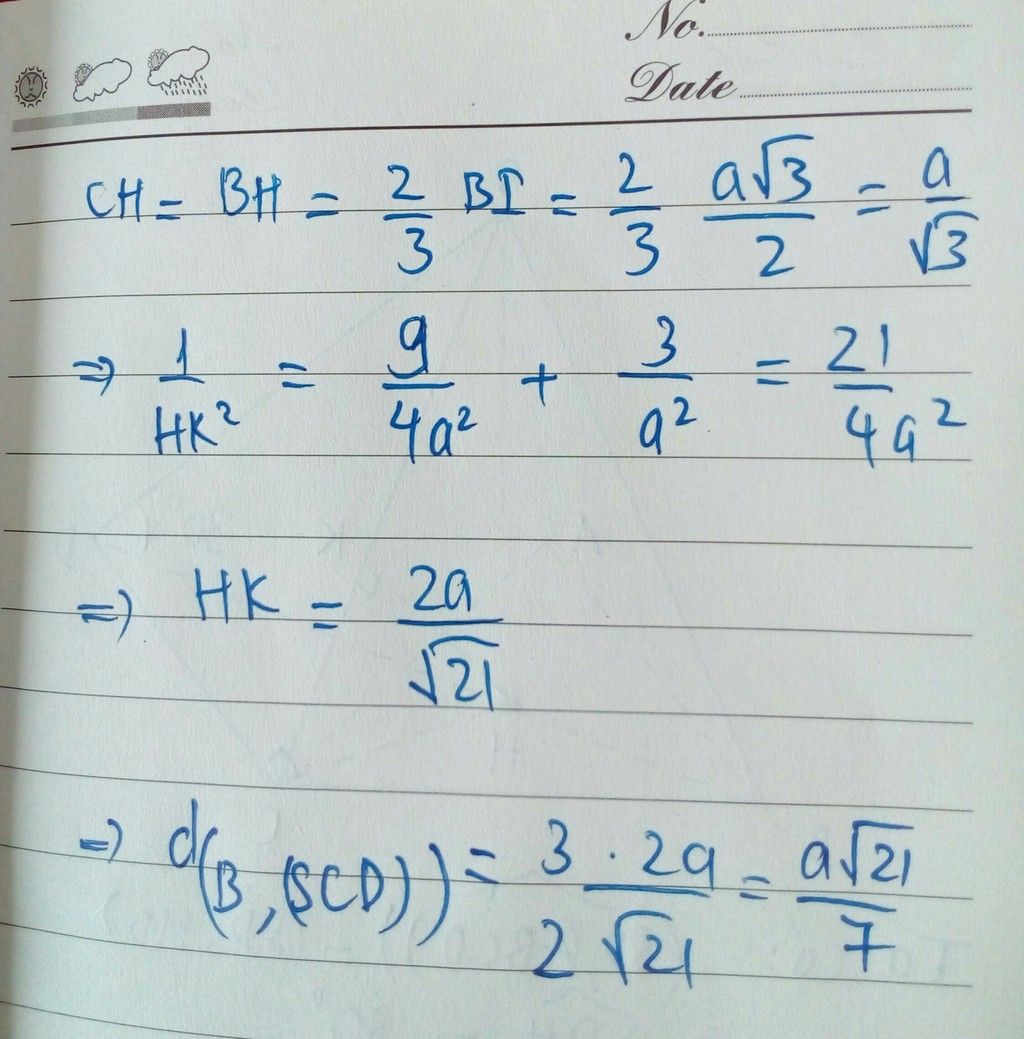 No.
Date
CH = BH = 2/3 BI = 2/3 a√3/2 = a/√3
=> 1/HK² = 9/4a² + 3/a² = 21/4a²
=> HK = 2a/√21
=> d(B,(SCD)) = 3 . 2a/2√21 = a√21/7